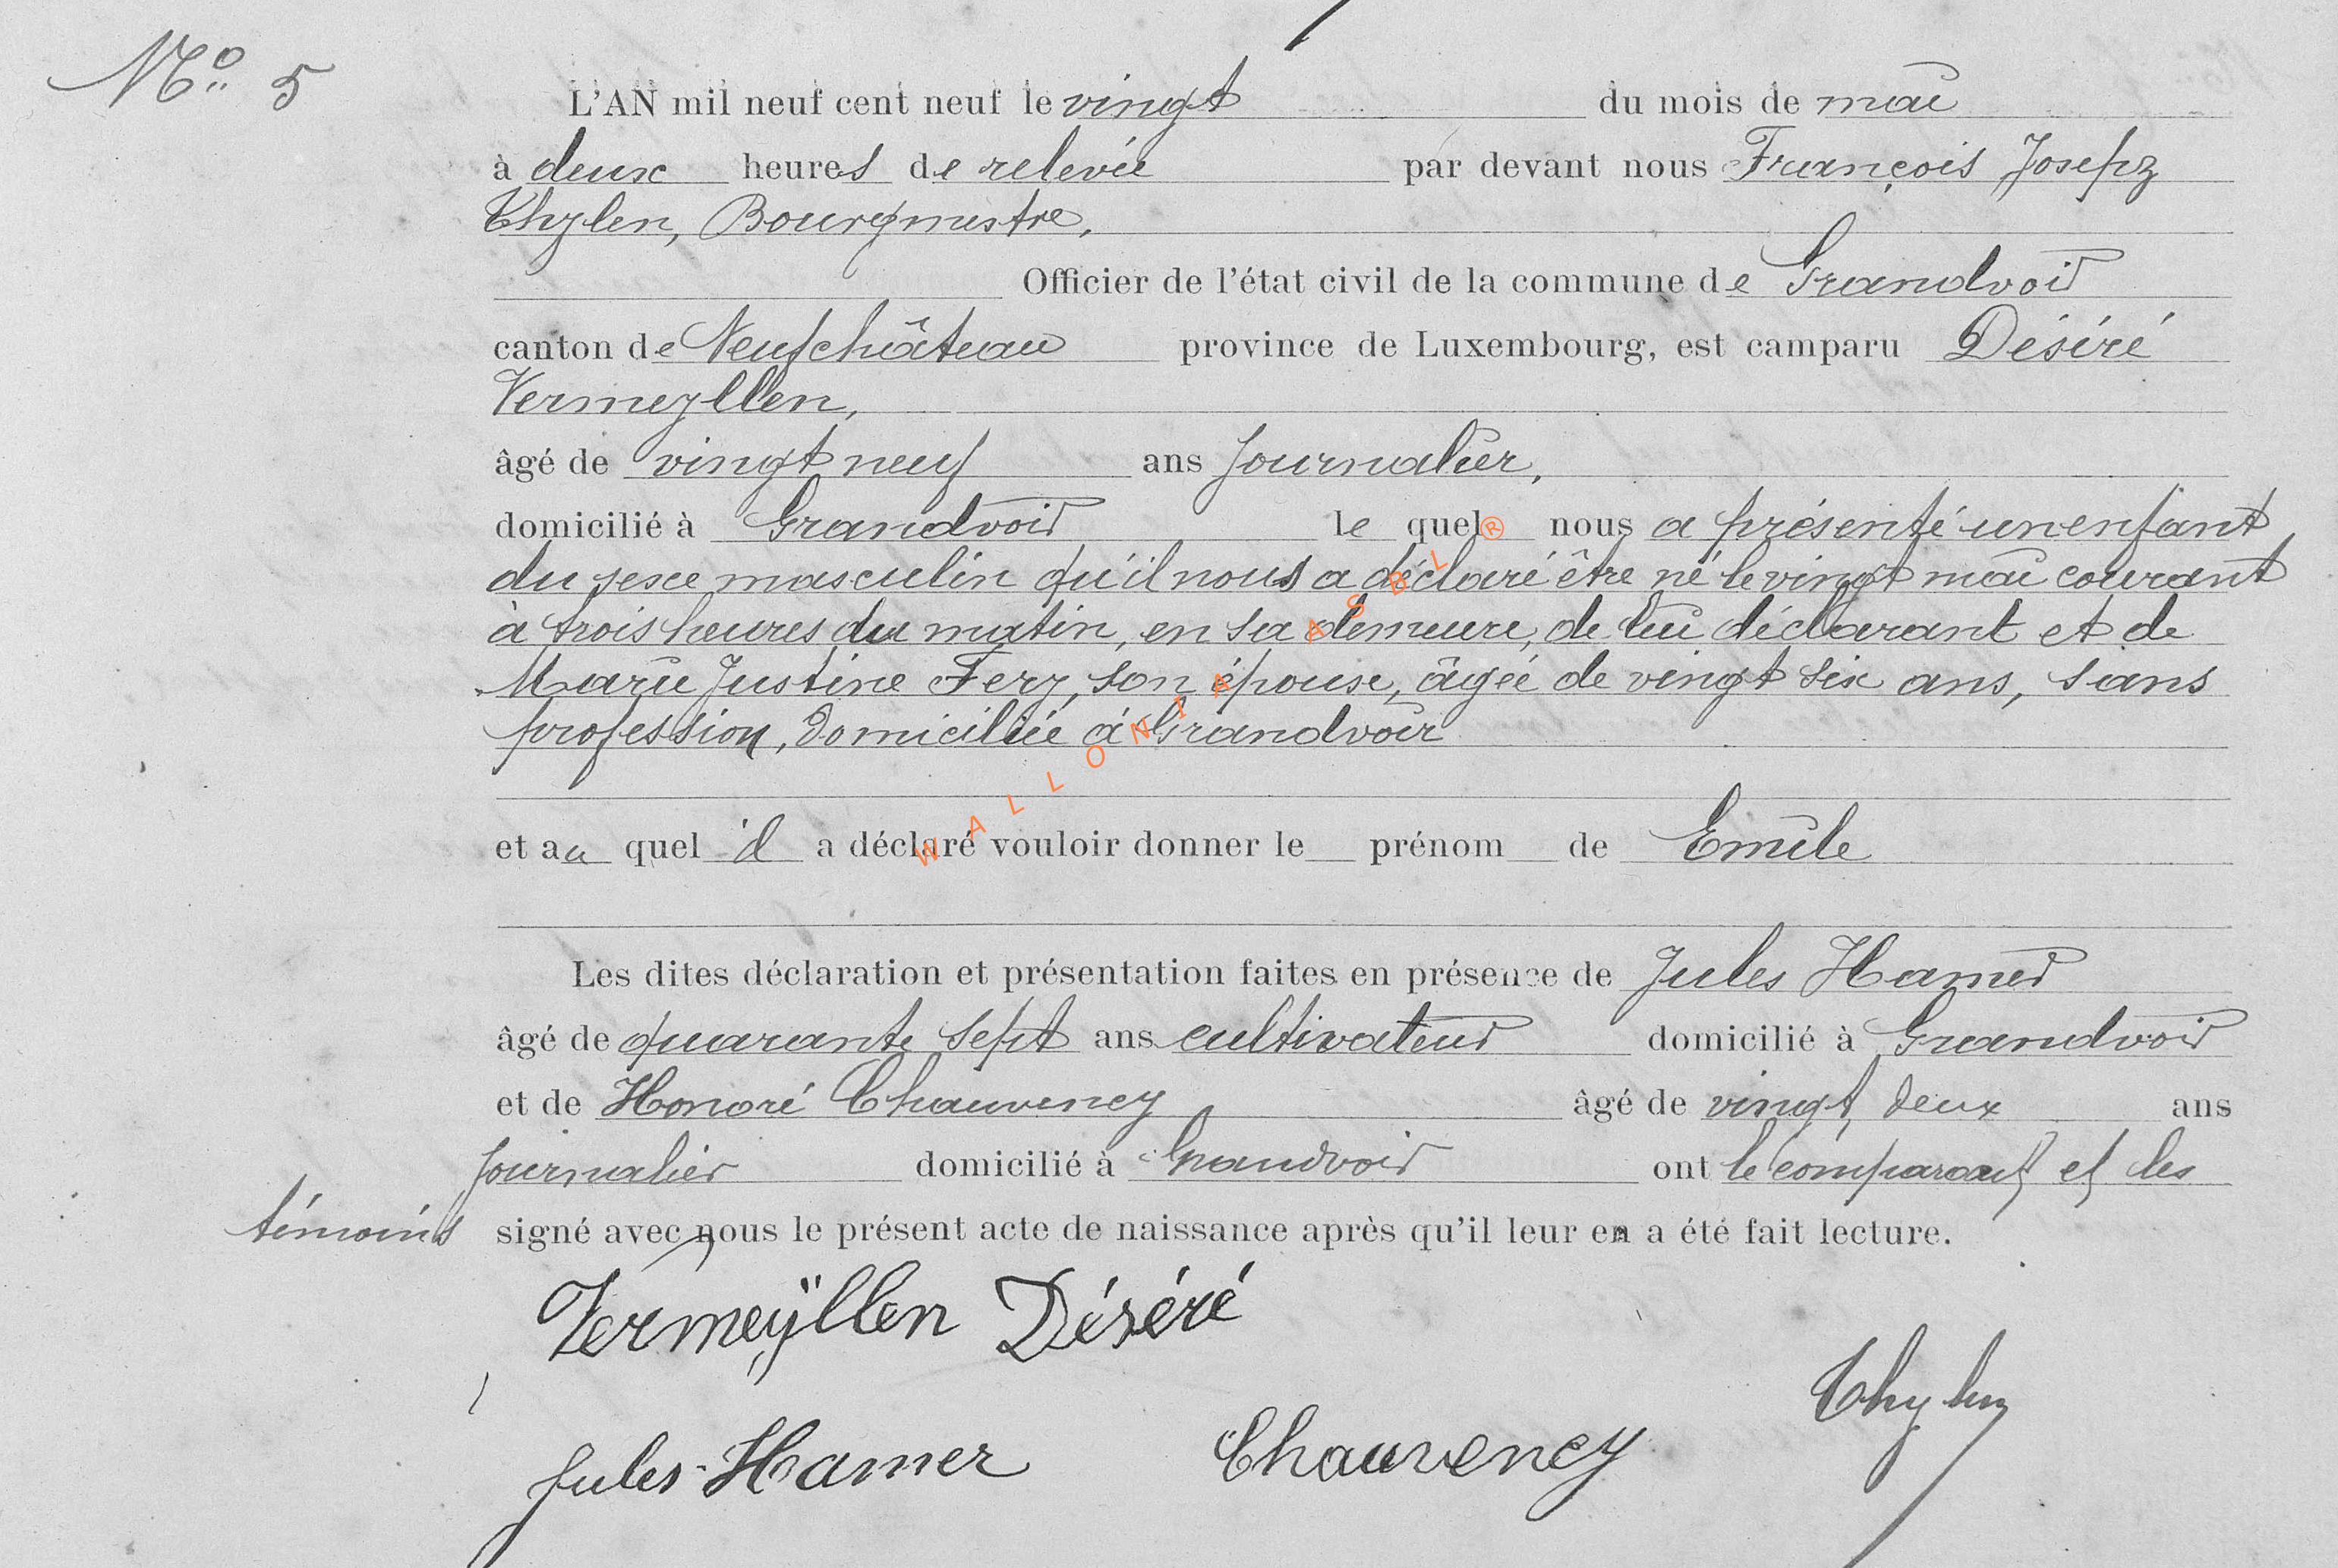 No 5
L'AN mil neuf cent neuf le vingt du mois de mai
à deux heures de relevée par devant nous François Joseph
Thylen, Bourgmestre,
Officier de l'état civil de la commune de Grandvoir
canton de Neufchâteau province de Luxembourg, est camparu Déséré
Vermeyllen,
âgé de vingt neuf ans Journalier,
domicilié à Grandvoir le quel nous a présenté un enfant
du sexe masculin qu'il nous a déclaré être né le vingt mai courant
à trois heures du matin, en sa demeure, de lui déclarant et de
Marie Justine Fery, son épouse, âgée de vingt six ans, sans
profession, domiciliée à Grandvoir
et au quel il a déclaré vouloir donner le prénom de Emile
Les dites déclaration et présentation faites en présence de Jules Hamer
âgé de quarante sept ans cultivateur domicilié à Grandvoir
et de Honoré Chauvency âgé de vingt deux ans
journalier domicilié à Grandvoir ont le comparant et les
témoins signé avec nous le présent acte de naissance après qu'il leur en a été fait lecture.
Vermeÿllen Déséré
Thylen
Jules Hamer Chauvency
WALLONIA ASBL ®